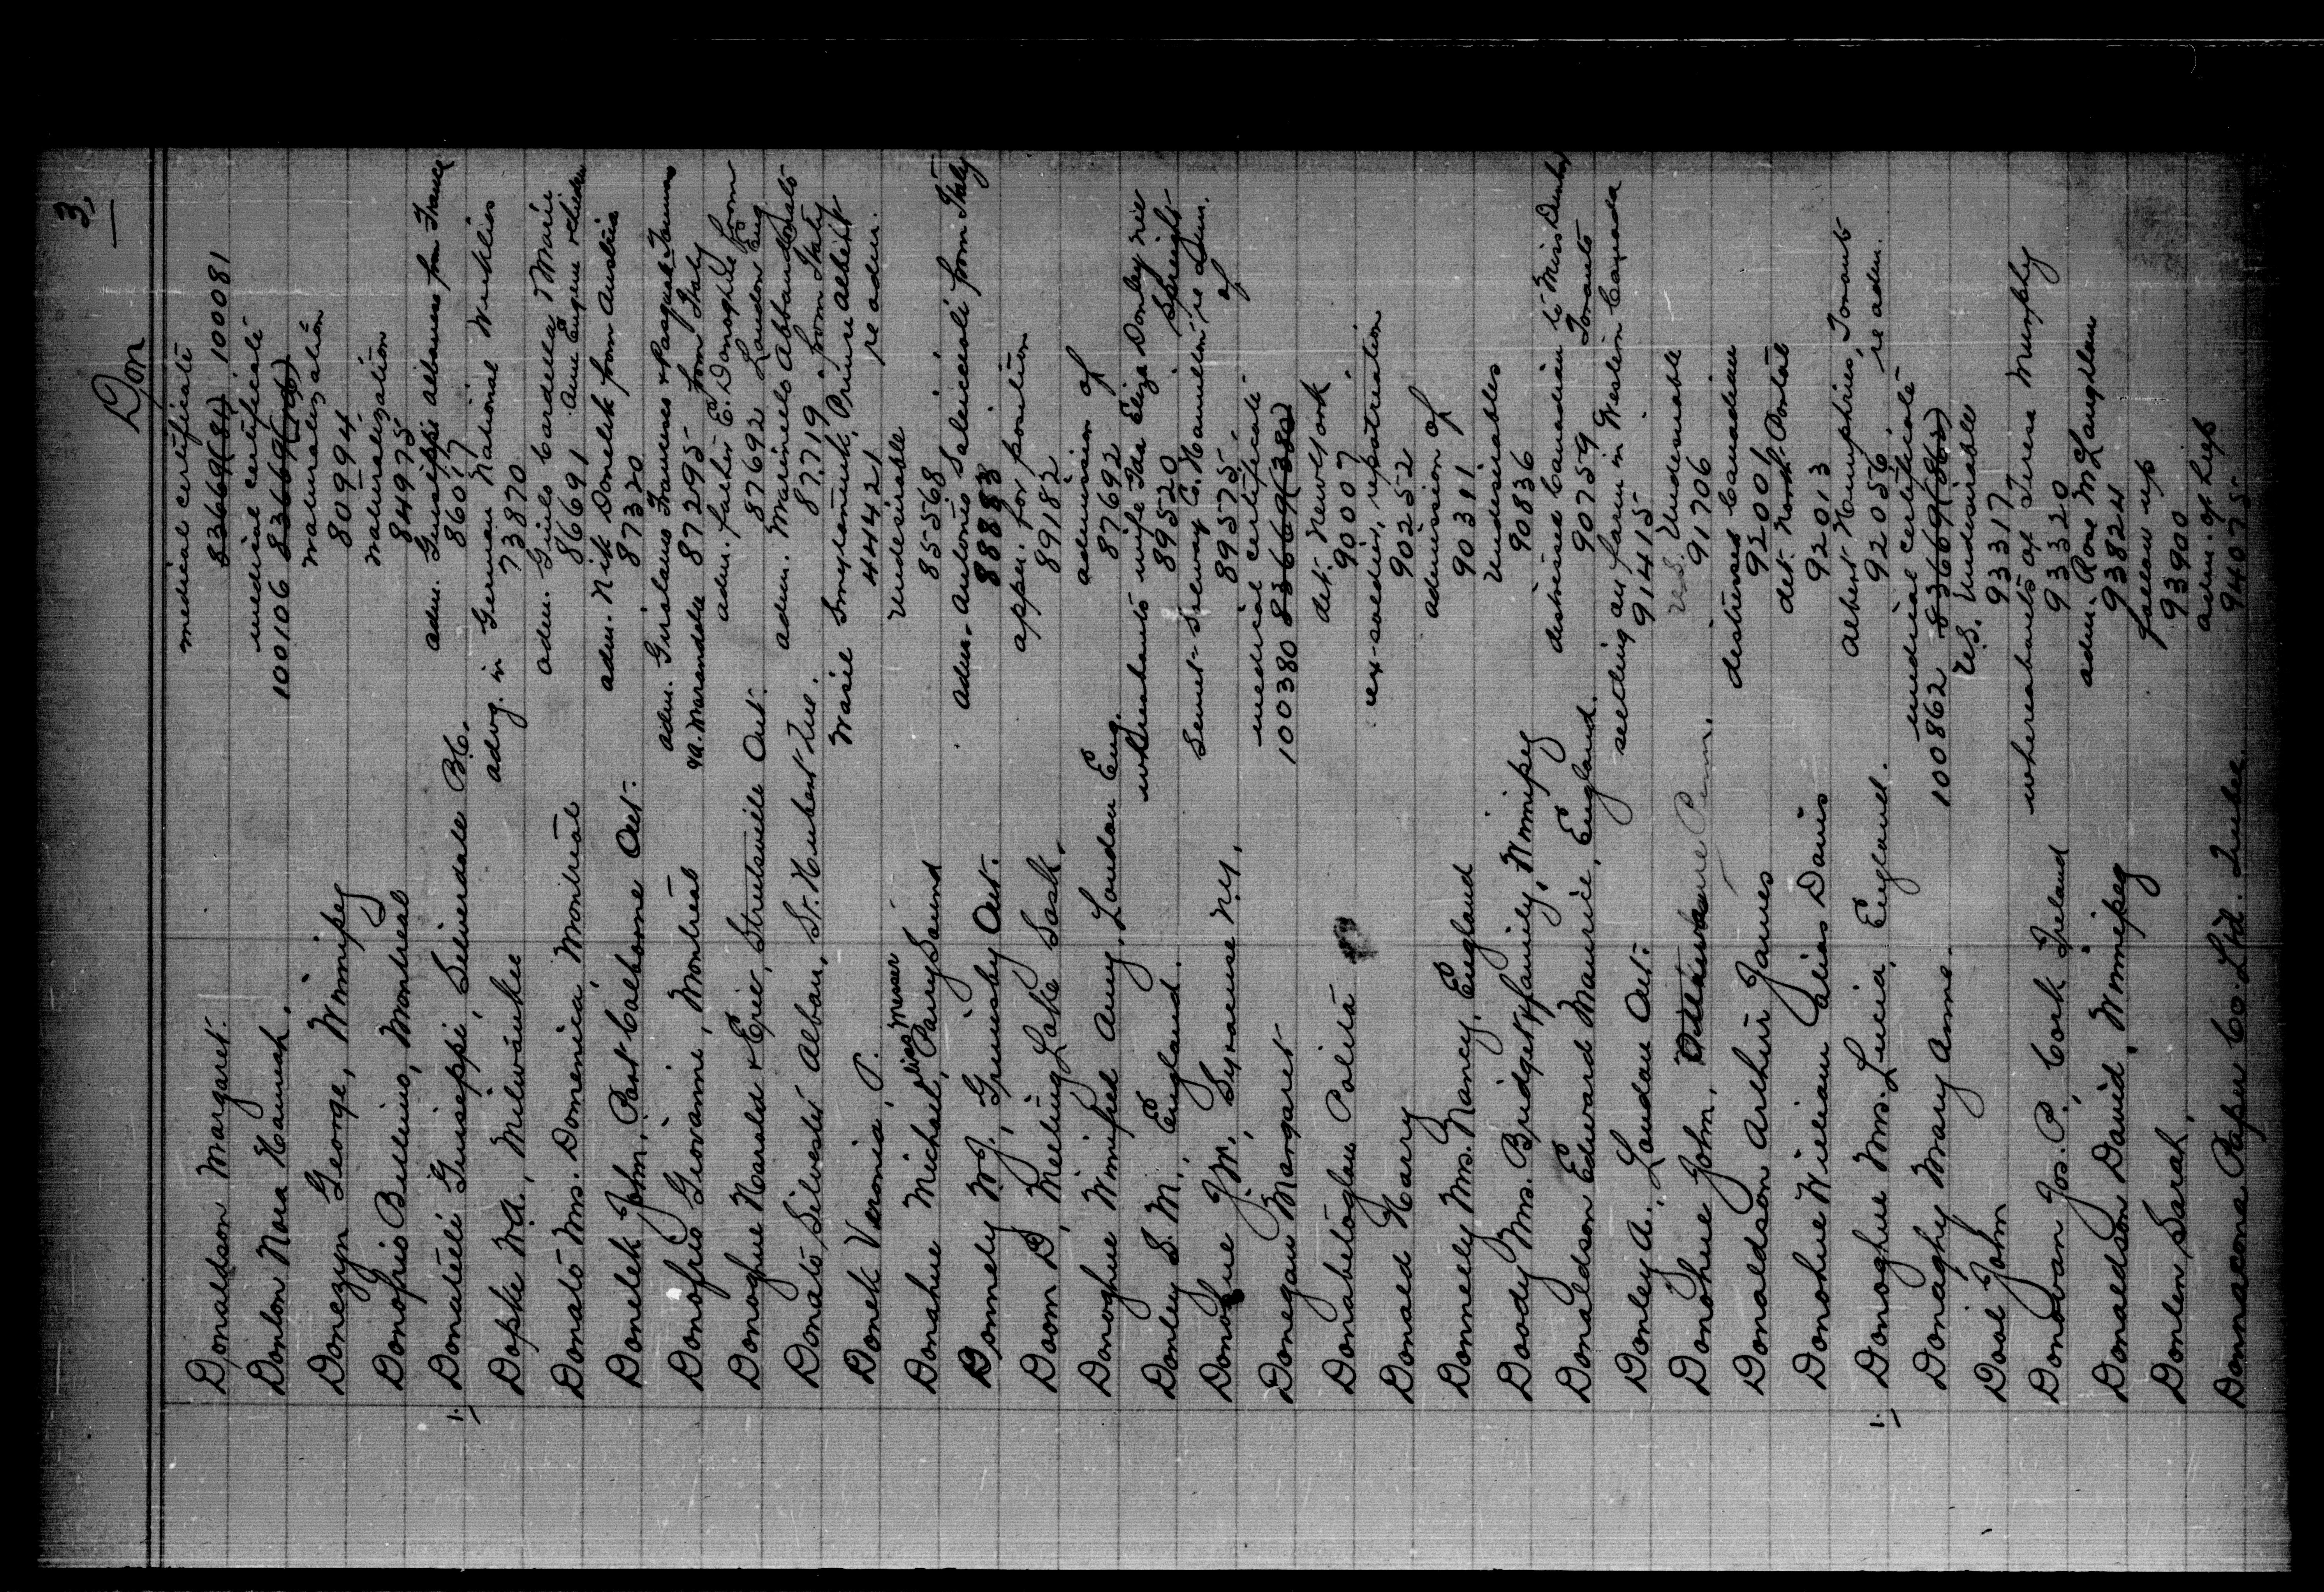 3,
Don
Donaldson Margaret. medical certificate
83669(81) 100081
Donlon Nora Hannah. medical certificate
100106 83669(106)
Donegyn George, Winnipeg naturalization
80994
Donofrio Bellino, Montreal naturalization
84975
1. Donatelli Guiseppi, Silverdale B.C. adm. Guiseppi Albanese from France
86017
Dopke W.A., Milwaukee advg. in German National Weeklies
73870
Donato Mrs. Domenica, Montreal adm. Guilo Cardella, Marie
86691 Ann Eugene
Donelek John, Port Colborne Ont. adm. Nik Donelek from Austria
87320
Donofrio Giovanni, Montreal adm. Girolamo Francesco & Pasquale
& A. Marandola 87295 from Italy
Donoghue Harald & Eric, Streetsville Ont. adm. father E. Donoghue from
87692 London Eng
Donato Silvester Alban, St. Hubert Que. adm. Marinelo Abbandonato
87719 from Italy
Donek Veronia, P. Wasil Smylaniuk, Prince Albert
44421 re adm.
Donahue Michael, alias Messer Parry Sound undesirable
85568
Donnely W.J., Grimsby Ont. adm. Antonio from Italy
88883
Doom D, Meeting Lake Sask. appn. for position
89182
Donoghue Winifred Amy, London Eng. admission of
87692
Donley S. M., England. whereabouts wife Ida Eliza Donley née
89520 Speight
Donohue J.M., Syracuse N.Y. C. Hamilton re adm. of
89575
Donegan Margaret medical certificate
100380 83669(380)
Donabetoglau Polita det. New York
90007
Donald Harry ex-soldier, repatriation
90252
Donnelly Mrs. Nancy, England admission of
90391
Doody Mrs. Bridget & family, Winnipeg undesirables
90836
Donaldson Edward Maurice, England. distressed Canadian to Miss
90759 Toronto
Donley A., London Ont. seeding on farm in Western Canada
91415
Donohue John, Penn. U.S. Undesirable
91706
Donaldson Arthur James distressed Canadian
92001
Donohue William alias Davis det. North Portal
92013
1. Donoghue Mrs. Lucia, England. Albert Humphries, Toronto
92056, re adm.
Donaghy Mary Anne. medical certificate
100862 83669(862)
Dool John U.S. Undesirable
93317
Donovan Jos. P., Cork Ireland whereabouts of Teresa Murphy
93320
Donaldson David, Winnipeg adm. Rose McLaughlan
93824
Donlen Sarah, follow up
93900
Donnacona Paper Co. Ltd. Quebec adm. of help
94075